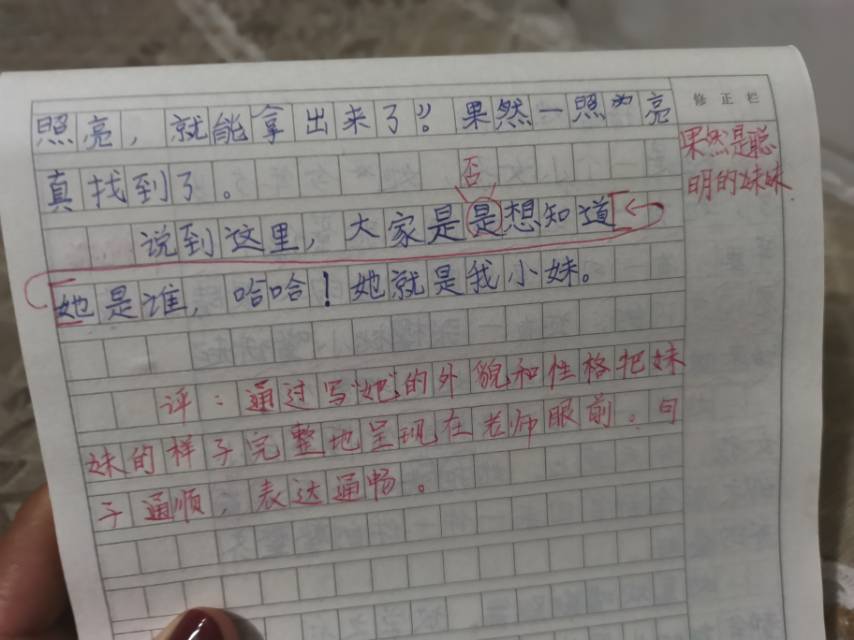 照亮，就能拿出来了”。果然一照亮
修正栏
果然是聪
明的妹妹
真找到了。
否
说到这里，大家是是想知道
她是谁，哈哈！她就是我小妹。
评：通过写“她”的外貌和性格把妹
妹的样子完整地呈现在老师眼前。句
子通顺，表达通畅。